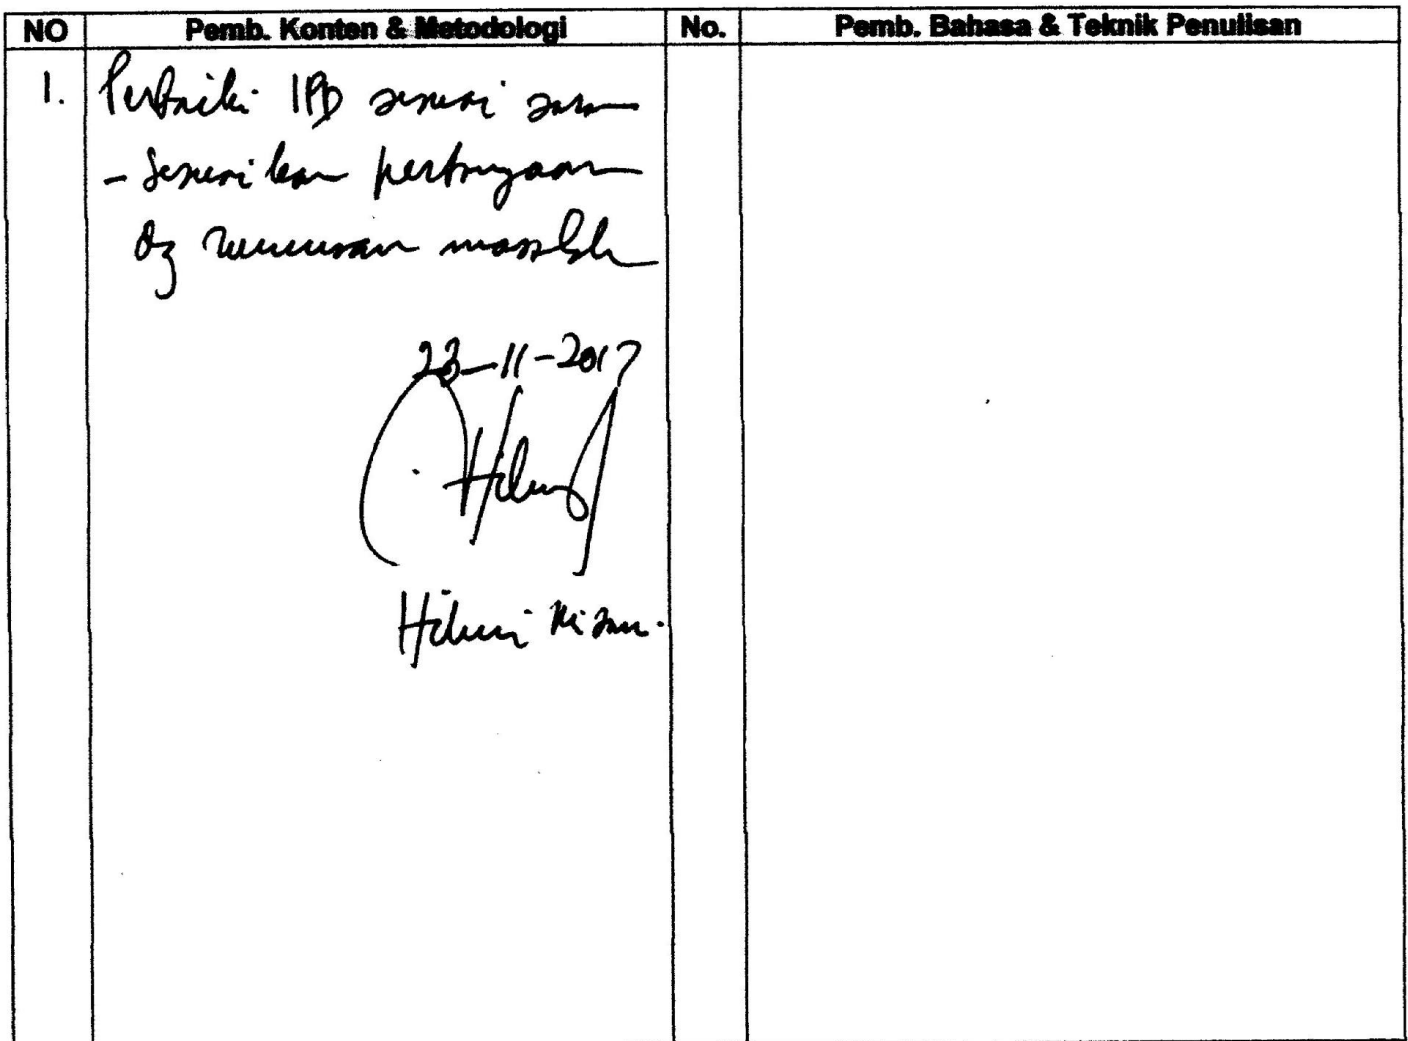 NO Pemb. Konten & Metodologi No. Pemb. Bahasa & Teknik Penulisan
1. Perbaiki IPD sesuai saran
- Sesuaikan pertanyaan
dg rumusan masalah
23-11-2017
Hilmi